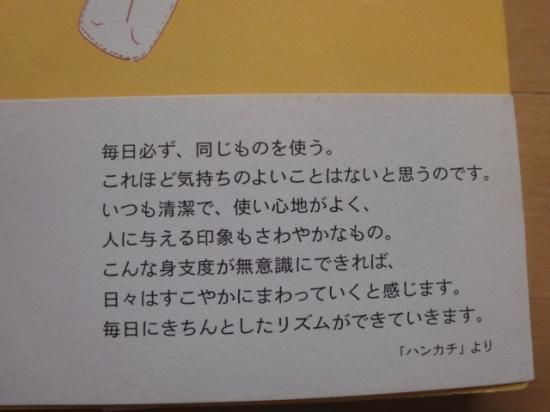 毎日必ず、同じものを使う。
これほど気持ちのよいことはないと思うのです。
いつも清潔で、使い心地がよく、
人に与える印象もさわやかなもの。
こんな身支度が無意識にできれば、
日々はすこやかにまわっていくと感じます。
毎日にきちんとしたリズムができていきます。
「ハンカチ」より